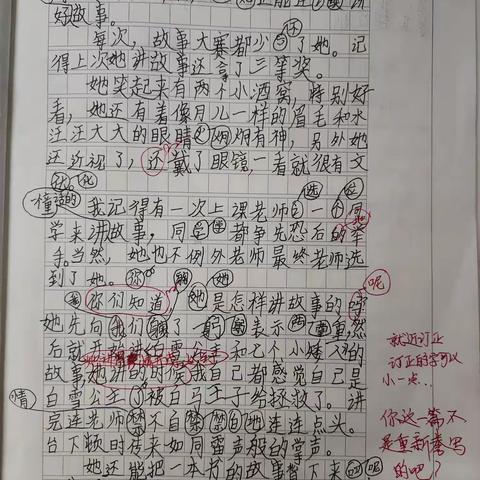 好故事。
每次,故事大赛都少不了她。记
得上次她讲故事还拿了三等奖。
她笑起来有两个小酒窝,特别好
看,她还有着像月儿一样的眉毛和水
汪汪大大的眼睛炯炯有神,另外她
还近视了,还戴了眼镜,一看就很有文
我记得有一次上课老师选一个同
学来讲故事,同学都争先恐后的举
手。当然,她也不例外老师最终老师选
到了她。
你们知道她是怎样讲故事的吗
呢
她先向我们鞠了一躬表示
然
后就开始讲白雪公主和七个小矮人的
故事她讲
我自己都感觉自己是
白雪公主被白马王子给拯救了。讲
情
完连老师都不自禁地连连点头。
台下顿时传来如同雷声般的掌声。
她还能把一本书的故事背下来
就近订正
订正的字可以
小一点…
你这一篇不
是重新誊写
的吧?